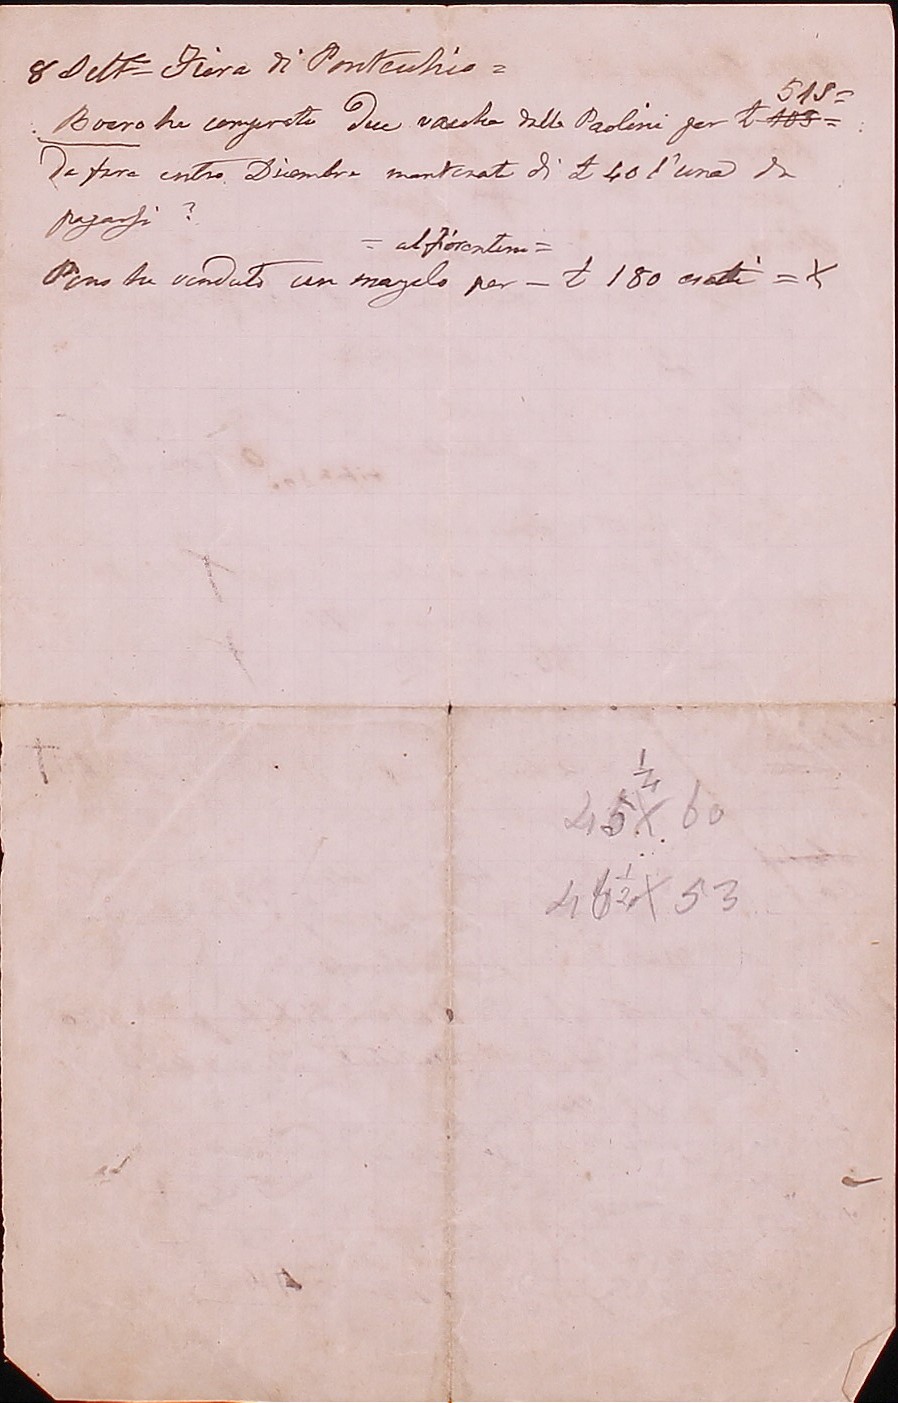 8 Sett= Fiera di Pontecchio =
515=
Boaro ha comprato Due vacche dalle Paolini per £ 403 =
Da fare entro Dicembre mantenute di £ 40 l'una da
pagarsi ?
= al fiorentini =
Pino ha venduto un magalo per — £ 180 esatti = X
1/4
45 X 60
48 1/2 X 53